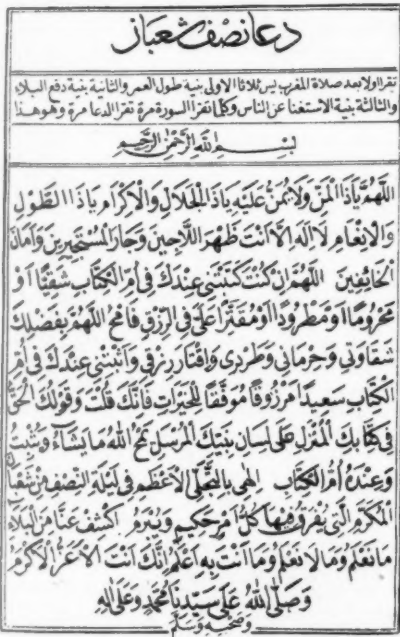 دعا نصف شعبان
تقرا اولا بعد صلاة المغرب يس ثلاثا الاولى بنية طول العمر والثانية بنية دفع البلاء
والثالثة بنية الاستغنا عن الناس وكلما تقرا السورة مرة تقرا الدعا مرة وهو هذا
بسم الله الرحمن الرحيم
اَللّٰهُمَّ يَاذَا الْمَنِّ وَلَا يُمَنُّ عَلَيْهِ يَاذَا الْجَلَالِ وَالْاِكْرَامِ يَاذَا الطَّوْلِ
وَالْاِنْعَامِ لَا اِلٰهَ اِلَّا اَنْتَ ظَهْرَ اللَّاجِينَ وَجَارَ الْمُسْتَجِيرِينَ وَاَمَانَ
الْخَائِفِينَ اَللّٰهُمَّ اِنْ كُنْتَ كَتَبْتَنِي عِنْدَكَ فِي اُمِّ الْكِتَابِ شَقِيًّا اَوْ
مَحْرُومًا اَوْ مَطْرُودًا اَوْ مُقَتَّرًا عَلَيَّ فِي الرِّزْقِ فَامْحُ اللّٰهُمَّ بِفَضْلِكَ
شَقَاوَتِي وَحِرْمَانِي وَطَرْدِي وَاِقْتَارَ رِزْقِي وَاَثْبِتْنِي عِنْدَكَ فِي اُمِّ
الْكِتَابِ سَعِيدًا مَرْزُوقًا مُوَفَّقًا لِلْخَيْرَاتِ فَاِنَّكَ قُلْتَ وَقَوْلُكَ الْحَقُّ
فِي كِتَابِكَ الْمُنْزَلِ عَلَى لِسَانِ نَبِيِّكَ الْمُرْسَلِ يَمْحُ اللّٰهُ مَا يَشَاءُ وَيُثْبِتُ
وَعِنْدَهُ اُمُّ الْكِتَابِ اِلٰهِي بِالتَّجَلِّي الْاَعْظَمِ فِي لَيْلَةِ النِّصْفِ مِنْ شَعْبَانَ
الْمُكَرَّمِ الَّتِي يُفْرَقُ فِيهَا كُلُّ اَمْرٍ حَكِيمٍ وَيُبْرَمُ اكْشِفْ عَنَّا مِنَ الْبَلَاءِ
مَا نَعْلَمُ وَمَا لَا نَعْلَمُ وَمَا اَنْتَ بِهِ اَعْلَمُ اِنَّكَ اَنْتَ الْاَعَزُّ الْاَكْرَمُ
وَصَلَّى اللّٰهُ عَلَى سَيِّدِنَا مُحَمَّدٍ وَعَلَى اٰلِهِ
وَصَحْبِهِ وَسَلَّمَ